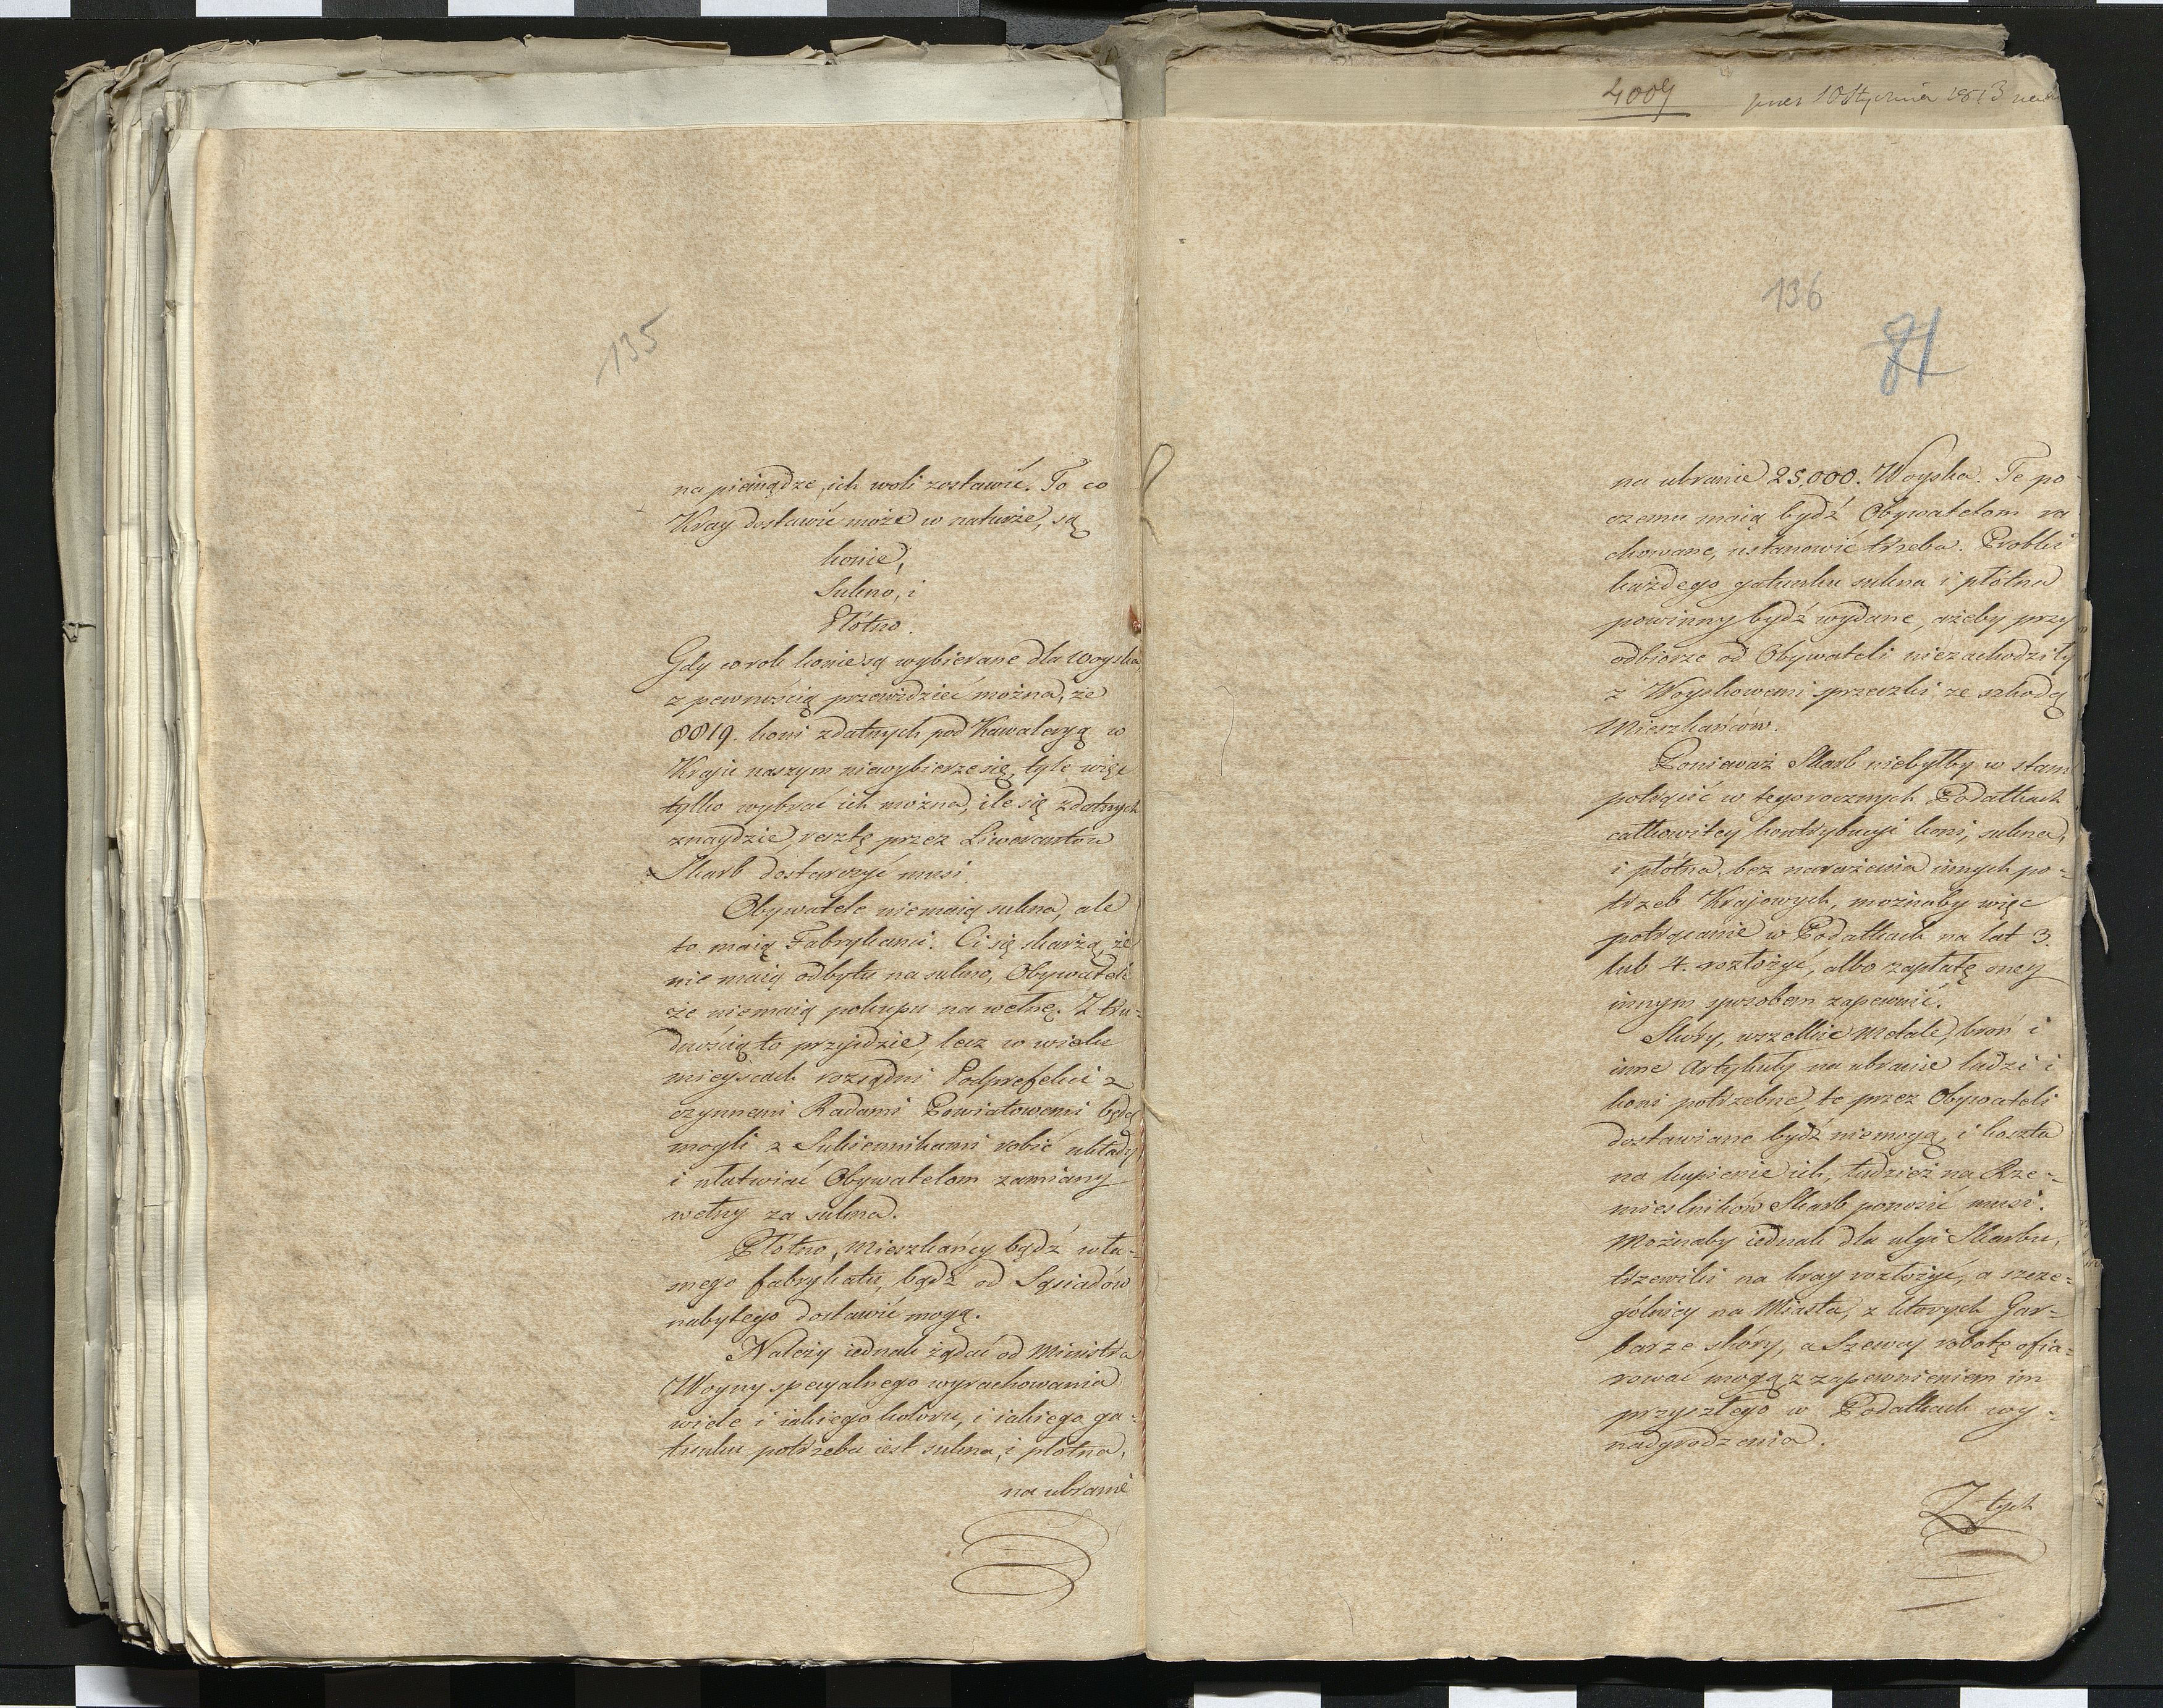 135
na pieniądze, ich woli zostawić. To co
Kray dostawić może w naturze, są
konie,
Sukno, i
Płótno.
Gdy co rok konie są wybierane dla woyska,
z pewnością przewidzieć można, że
8819. koni zdatnych pod Kawaleryą w
Kraju naszym niewybierze się, tyle więc
tylko wybrać ich można, ile się zdatnych
znaydzie, resztę przez Liwerantów
Skarb dostarczyć musi.
Obywatele niemaią sukna, ale
to maią Fabrykanci. Ci się skarżą, że
nie maią odbytu na sukno, Obywateli
że niemaią pokupu na wełnę. Z tru-
dnością to przyidzie, lecz w wielu
mieyscach rozsądni Podprefekci z
czynnemi Radami Powiatowemi będą
mogli z Sukiennikami robić układy
i ułatwiać Obywatelom zamiany
wełny za sukna.
Płótno, Mieszkańcy bądź wła-
snego fabrykatu, bądź od Sąsiadów
nabytego dostawić mogą.
Należy iednak żądać od Ministra
Woyny specyalnego wyrachowania
wiele i iakiego koloru, i iakiego ga-
tunku potrzeba iest sukna, i płótna,
na ubranie
4009
przez 10 Stycznia 1813
136
81
na ubranie 25,000. Woyska. Te po
czemu maią bydź Obywatelom ra
chowane, ustanowić trzeba. Probki
każdego gatunku sukna i płótna
powinny bydź wydane, ażeby przy
odbiorze od Obywateli niezachodziły
z Woyskowemi sprzeczki ze szkodą
Mieszkańców.
Ponieważ Skarb niebyłby w stani
potrącić w tegorocznych Podatkach
całkowitey kontrybucyi koni, sukna,
i płótna, bez narażenia innych po-
trzeb Krajowych, możnaby więc
potrącanie w Podatkach na lat 3.
lub 4. rozłożyć, albo zapłatę oney
innym sposobem zapewnić.
Skóry, wszelkie Metale, broń i
inne Artykuły na ubranie ludzi i
koni potrzebne, te przez Obywateli
dostawiane bydź niemogą, i koszta
na kupienie ich, tudzież na Rze-
mieslników Skarb ponosić musi.
Możnaby iednak dla ulgi Skarbu,
trzewiki na kray rozłożyć, a szcze-
gólniey na Miasta, z ktorych Gar-
barze skóry, a Szewcy robotę ofia-
rować mogą z zapewnieniem im
przyszłego w Podatkach wy-
nadgrodzenia.
Z tych